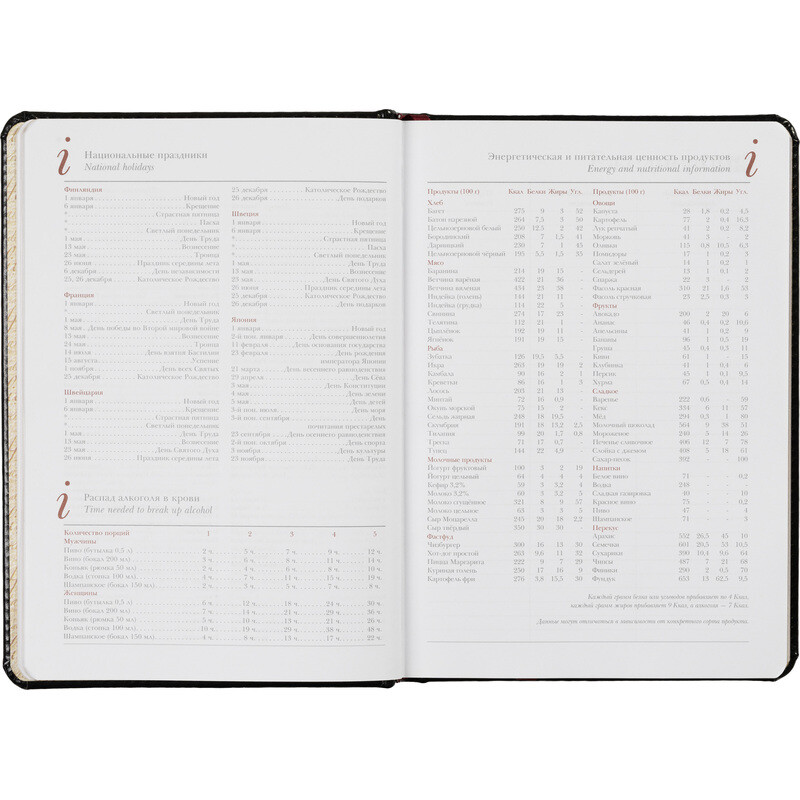 Национальные праздники
National holidays
Финляндия
1 января Новый год
6 января Крещение
* Страстная пятница
* Пасха
* Светлый понедельник
1 мая День Труда
13 мая Вознесение
23 мая Троица
26 июня Праздник середины лета
6 декабря День независимости
25, 26 декабря Католическое Рождество
Франция
1 января Новый год
* Светлый понедельник
1 мая День Труда
8 мая День победы во Второй мировой войне
13 мая Вознесение
24 мая Троица
14 июля День взятия Бастилии
15 августа Успение
1 ноября День всех Святых
25 декабря Католическое Рождество
Швейцария
1 января Новый год
6 января Крещение
* Страстная пятница
* Светлый понедельник
1 мая День Труда
13 мая Вознесение
23 мая День Святого Духа
26 июня Праздник середины лета
25 декабря Католическое Рождество
26 декабря День подарков
Швеция
1 января Новый год
6 января Крещение
* Страстная пятница
* Пасха
* Светлый понедельник
1 мая День Труда
13 мая Вознесение
23 мая День Святого Духа
26 июня Праздник середины лета
25 декабря Католическое Рождество
26 декабря День подарков
Япония
1 января Новый год
2-й пон. января День совершеннолетия
11 февраля День основания государства
23 февраля День рождения
императора Японии
21 марта День весеннего равноденствия
29 апреля День Сёва
3 мая День Конституции
4 мая День зелени
5 мая День детей
3-й пон. июля День моря
3-й пон. сентября День
почитания престарелых
23 сентября День осеннего равноденствия
2-й пон. октября День спорта
3 ноября День культуры
23 ноября День Труда
Распад алкоголя в крови
Time needed to break up alcohol
Количество порций 1 2 3 4 5
Мужчины
Пиво (бутылка 0,5 л) 2 ч. 5 ч. 7 ч. 9 ч. 12 ч.
Вино (бокал 200 мл) 3 ч. 6 ч. 8 ч. 11 ч. 14 ч.
Коньяк (рюмка 50 мл) 2 ч. 4 ч. 6 ч. 8 ч. 10 ч.
Водка (стопка 100 мл) 4 ч. 7 ч. 11 ч. 15 ч. 19 ч.
Шампанское (бокал 150 мл) 2 ч. 3 ч. 5 ч. 7 ч. 8 ч.
Женщины
Пиво (бутылка 0,5 л) 6 ч. 12 ч. 18 ч. 24 ч. 30 ч.
Вино (бокал 200 мл) 7 ч. 14 ч. 21 ч. 29 ч. 36 ч.
Коньяк (рюмка 50 мл) 5 ч. 10 ч. 13 ч. 21 ч. 26 ч.
Водка (стопка 100 мл) 10 ч. 19 ч. 29 ч. 38 ч. 48 ч.
Шампанское (бокал 150 мл) 4 ч. 8 ч. 13 ч. 17 ч. 22 ч.
Энергетическая и питательная ценность продуктов
Energy and nutritional information
Продукты (100 г) Ккал. Белки Жиры Угл.
Хлеб
Багет 275 9 3 52
Батон нарезной 264 7,5 3 50
Цельнозерновой белый 250 12,5 2 42
Бородинский 208 7 1,5 41
Дарницкий 230 7 1 45
Цельнозерновой чёрный 195 5,5 1,5 35
Мясо
Баранина 214 19 15
Ветчина варёная 422 21 36 -
Ветчина вяленая 434 23 38 -
Индейка (голень) 144 21 11
Индейка (грудка) 114 22 5
Свинина 274 17 23
Телятина 112 21 1 -
Цыплёнок 192 19 11 -
Ягнёнок 191 19 15 -
Рыба
Зубатка 126 19,5 5,5 -
Икра 263 19 19 2
Камбала 90 16 2 1
Креветки 86 16 1 3
Лосось 203 21 13 -
Минтай 72 16 0,9 -
Окунь морской 75 15 2 -
Сельдь жирная 248 18 19,5 -
Скумбрия 191 18 13,2 2,5
Тилапия 90 20 1,7 0,8
Треска 71 17 0,7 -
Тунец 144 22 4,9 -
Молочные продукты
Йогурт фруктовый 100 3 2 19
Йогурт цельный 64 4 4 4
Кефир 3,2% 59 3 3,2 4
Молоко 3,2% 60 3 3,2 5
Молоко сгущённое 321 8 9 57
Молоко цельное 63 3 3 5
Сыр Моцарелла 245 20 18 2,2
Сыр твёрдый 350 30 30 -
Фастфуд
Чизбургер 300 16 13 30
Хот-дог простой 263 9,6 11 32
Пицца Маргарита 222 9 7 29
Куриная голень 250 17 16 9
Картофель фри 276 3,8 15,5 30
Продукты (100 г) Ккал. Белки Жиры Угл.
Овощи
Капуста 28 1,8 0,2 4,5
Картофель 77 2 0,4 16,3
Лук репчатый 41 2 0,2 8,2
Морковь 41 3 - 2
Оливки 115 0,8 10,5 6,3
Помидоры 17 1 0,2 3
Салат зелёный 14 1 0,2 1
Сельдерей 13 1 0,1 2
Спаржа 22 3 - 2
Фасоль красная 316 21 1,6 53
Фасоль стручковая 23 2,5 0,3 3
Фрукты
Авокадо 200 2 20 6
Ананас 46 0,4 0,2 10,6
Апельсины 41 1 0,2 9
Бананы 96 1 0,5 19
Груша 45 0,4 0,3 11
Киви 61 1 - 15
Клубника 41 1 0,4 6
Персик 45 1 0,1 9,5
Хурма 67 0,5 0,4 14
Сладкое
Варенье 222 0,6 - 59
Кекс 334 6 11 57
Мёд 294 0,3 1 80
Молочный шоколад 564 9 38 51
Мороженое 240 5 14 26
Печенье сливочное 406 12 7 78
Слойка с джемом 408 5 18 51
Сахар-песок 392 - - 100
Напитки
Белое вино 71 - - 0,2
Водка 248 - - -
Сладкая газировка 40 - - 10
Красное вино 75 - - 0,2
Пиво 47 - - 4
Шампанское 71 - - 3
Перекус
Арахис 552 26,5 45 10
Семечки 601 20,5 53 10,5
Сухарики 390 10,4 9,6 64
Чипсы 487 7 21 68
Финики 290 2 0,5 70
Фундук 653 13 62,5 9,5
Каждый грамм белка или углеводов прибавляет по 4 Ккал,
каждый грамм жиров прибавляет 9 Ккал, а алкоголя — 7 Ккал.
Данные могут отличаться в зависимости от конкретного сорта продукта.